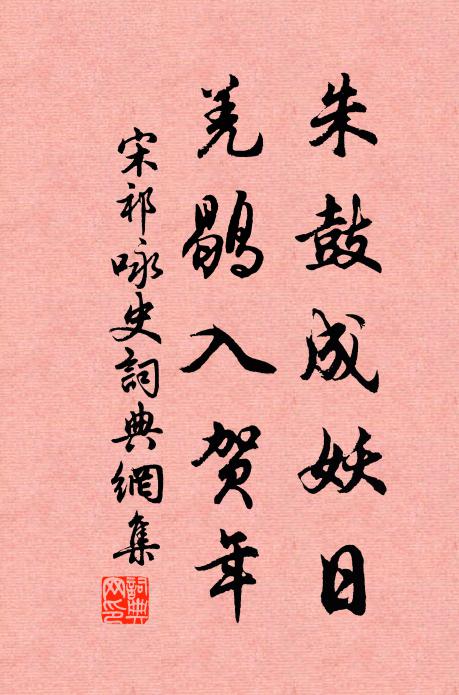 朱鼓成妖日
羌鶡入賀年
宋祁咏史詞典網集
詞典網印